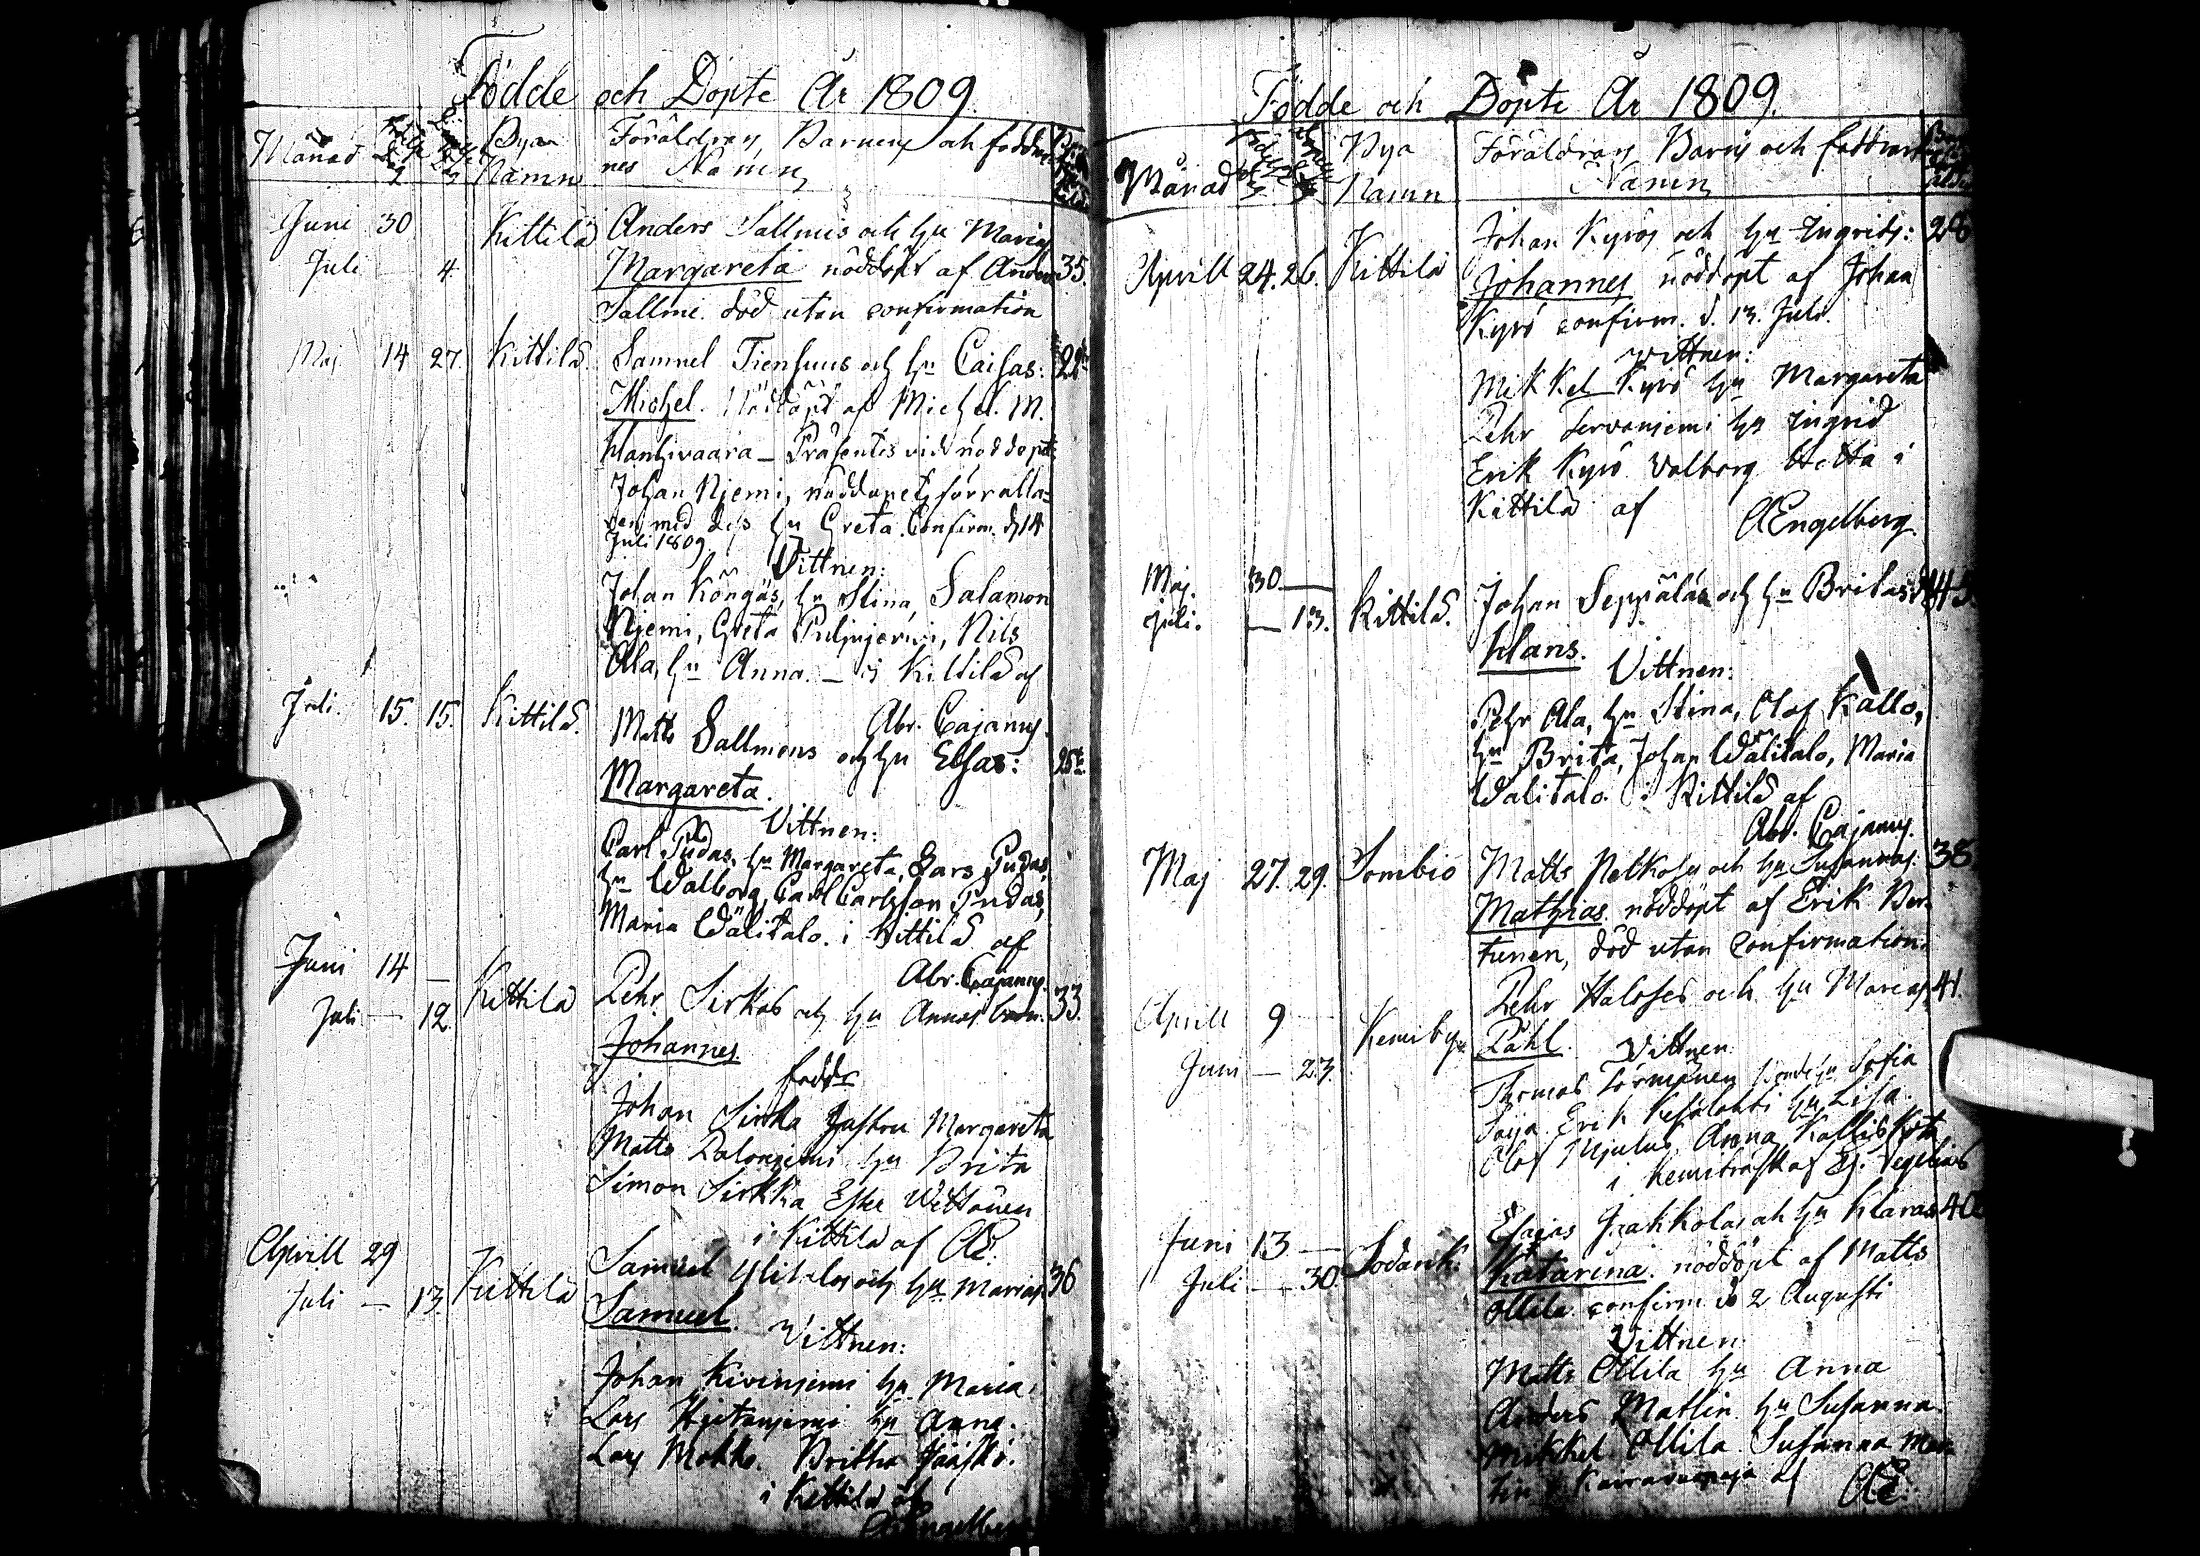 Födde och Döpte År 1809.
Månad Bya Namn Föräldrars, Barnens och faddrarnes Namn
Juni 30 Kittilä Anders Sallmes och hu Marias
Juli — 4 Margareta nöddöpt af Anders 35.
Sallme. död utan confirmation
Maj 14 27. Kittilä. Samuel Tiensuus och hu Caisas:
Michel. Nöddöpt af Michel. M.
Hanhivaara – Präsentes vid nöddopet
Johan Niemi, nöddopets förrätta=
ren med dess hu Greta. Confirm. d. 14
Juli 1809
Vittnen:
Johan Köngäs, hu Stina, Salamon
Niemi, Greta Puljujerwi, Nils
Ala, hu Anna. – i Kittilä af
Abr. Cajanus.
Juli. 15. 15. Kittilä. Matts Sallmens och hu Elsas: 25
Margareta.
Vittnen:
Carl Pudas, hu Margareta, Lars Pudas,
hu Walborg, Carl Carlsson Pudas,
Maria Wälitalo. i Kittilä af
Abr. Cajanus.
Juni 14 —
Juli — 12. Kittilä Pehr Sirkas och hu Annas barn. 33.
Johannes.
faddr
Johan Sirka Hustru Margareta
Matts Palonjemi hu Brita
Simon Sirkka
i Kittila af AE.
Aprill 29
Juli — 13. Kittilä Samuel Ylitalos och hu Marias 36
Samuel.
Vittnen:
Johan Kivinjemi hu Maria.
Lars Hietanjemi hu Anna.
Lars Mokko. Britha
i Kittila af
AEngelberg
Födde och Döpte År 1809.
Månad Bya Namn Föräldrars Barns och faddrars Namn
Johan Kyrös och hu Ingrids: 28
Aprill 24. 26. Kittilä Johannes nöddöpt af Johan
Kyrö confirm. d. 13. Juli.
vittnen:
Mikkel Kyrö hu Margareta
Pehr Jervenjemi hu Ingrid
Erik Kyrö Valborg Hetta i
Kittilä af AEngelberg.
Maj. 30 —
Juli. — 13. Kittilä. Johan Seppäläs och hu Britas
Hans.
Vittnen:
Pehr Ala, hu Stina, Olof Kallo,
hu Brita, Johan Wälitalo, Maria
Walitalo. i Kittilä af
Abr. Cajanus.
Maj 27. 29. Sombio Matts och hu Susannas: 38
Mathias nöddöpt af Erik Per=
tunen, död utan Confirmation.
Aprill 9 — Kemiby Pehr Haloses och hu Marias 41.
Juni — 23. Påhl. Vittnen
Thomas Törmänen hu Sofia
Erik Kesälahti hu Lisa.
Olof Anna
i Kemiträsk af
Juni 13 — Esaias Jaakkolas och hu Klaras 40
Juli — 30. Sodank. Katarina. nöddöpt af Matts
Ollila confirm d 2 Augusti
Vittnen:
Matts Ollila hu Anna
Anders Matlin hu Susanna.
Mikkel Ollila. Susanna
af AE.